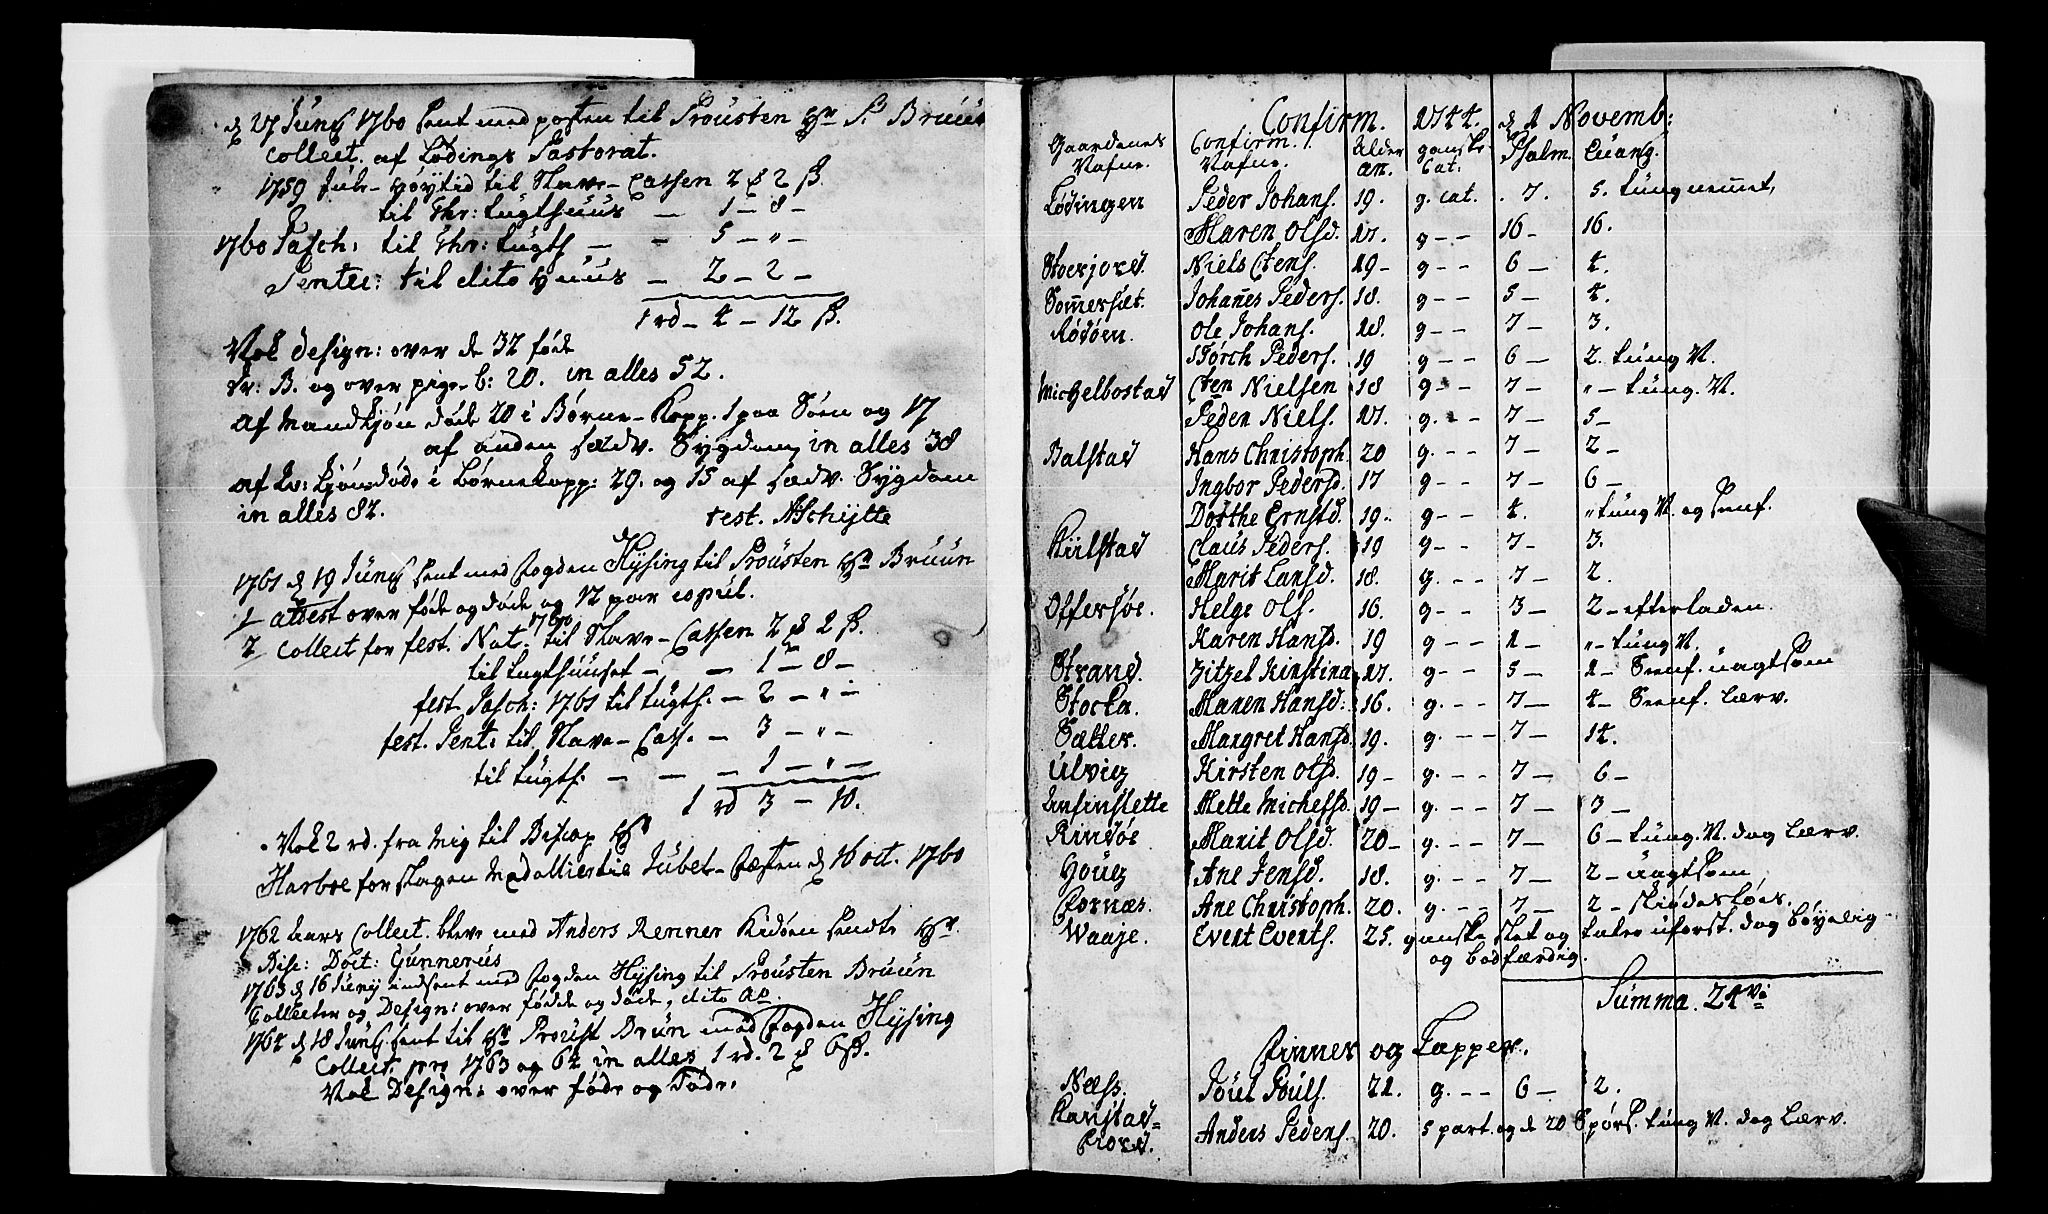 d 27 Junÿ 1760 sent med posten til Prousten Hr P. Bruun
Collect. af Lødings Pastorat.
1759 Jule-Høytid til Slave-Cassen 2 ℔ 2 ß.
til Thr: Tugthuus — 1 – 8 –
1760 Pasch: til Thr: Tugth — – 5 – " –
Pente: til dito Huus — 2 – 2 –
1 rd – 4 – 12 ß.
Nok Design: over de 32 føde
Dr: B. og over pige-b: 20. in alles 52.
af Mandkjøn døde 20 i Børne-Kopp. 1 paa Søen og 17
af anden sædv. Sygdom, in alles 38
af Qv: kjøn døde i Børnekopp: 29. og 15 af sædv. Sygdom
in alles 82. test. A Schÿtte
1761 d 19 Junÿ sent med Fogden Hÿsing til Prousten Hr Bruun
1/ attest over føde og døde og 12 par copul.
2/ Collect for fest. Nat: 1760 til Slave-Cassen 2 ℔ 2 ß.
til Tugthuuset – – 1 – 8 –
fest. Pasch: 1761 til Tugth. – 2 – " –
fest. Pent: til Slave-Cass. – 3 – " –
til Tugth. – – – 1 – " –
1 rd 3 – 10.
Nok 2 rd. fra Mig til Biscop Hr
Harboe for slagen Medallie til Jubel-Fæsten d 16 oct. 1760
1762 Aars Collect. bleve med Anders Renner Kidøen sendt Hr
Bisc: Doct: Gunnerus
1763 d 16 Junij indsent med Fogden Hÿsing til Prousten Bruun
Collecter og Design: over fødde og døde, dito
1764 d 18 Junÿ sent til Hr Proust Brun med Fogden Hÿsing
Collect. pro 1763 og 64 in alles 1 rd. 2 ℔ 6 ß.
Nok Design: over føde og Døde.
Confirm. 1744. d 1 Novemb:
Gaardenes Nafne. Confirm. Nafne. Alder an. ganske Cat: Psalm. Euang.
Lødingen Peder Johans. 19. g. cat. 7. 5. tung nemmet,
Maren Olsd. 17. g – – 16 – 16.
Storjord. Niels Stens. 19 – g – – 6 – 4.
Sommersæt. Johannes Peders. 18. g – – 5 – 4.
Rødøen. Ole Johans. 18. g – – 7 – 3.
Størch Peders. 19 g – – 6 – 2. tung N.
Michelbostad Sten Nielsen 18 g – – 7 – " – tung. N.
Peder Niels. 17. g. – – 7 – 5 –
Balstad Hans Christoph. 20 g. – – 7 – 2 –
Ingbor Pedersd. 17 g – – 7 – 6 –
Dorthe Ernstd. 19. g – – 4. " tung N. og senf.
Kiilstad Claus Peders. 19 g – – 7 – 3.
Marit Larsd. 18. g. – – 7 – 2.
Offersøe. Helge Ols. 16. g – – 3 – 2 – efterladen.
Karen Hansd. 19 g – – 1 – " – tung N.
Strand. Zitzel Kirstina 17. g – – 5 – 1 – Senf. uagtsom
Stocka. Maren Hansd: 16. g – – 7 – 4 – Senf. Lærv.
Sætter. Margret Hansd. 19. g. – – 7 – 14.
Ulvig Kirsten Olsd. 19 – g. – – 7 – 6 –
Ansinslette Mette Michelsd. 19 – g. – – 7 – 3 –
Rinøe Marit Olsd. 20 – g. – – 7 – 6 – tung. N. dog Lærv.
Houg Ane Jensd. 18. g. – – 7 – 2 – uagtsom,
Fornæs. Ane Christoph. 20. g. – – 7 – 2 – skiødesløs.
Waaje. Evert Everts. 25. ganske slet og taler uforst. dog bøyelig
og bodfærdig.
Summa. 24ve
Finner og Lapper.
Næss. Jouel Pouls. 21. g. – – 6 – 2.
Kanstad- Anders Peders. 20. 5 part. og de 20 Spørs. tung N. dog Lærv.
Fiord.